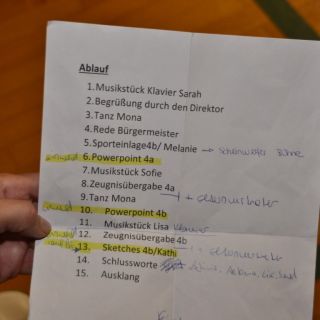 Ablauf
1. Musikstück Klavier Sarah
2. Begrüßung durch den Direktor
3. Tanz Mona
4. Rede Bürgermeister
5. Sporteinlage4b/ Melanie → Scheinwerfer Bühne
6. Powerpoint 4a
7. Musikstück Sofie
8. Zeugnisübergabe 4a
9. Tanz Mona
10. Powerpoint 4b
11. Musikstück Lisa Klavier
12. Zeugnisübergabe 4b
13. Sketches 4b/Kathi
14. Schlussworte
15. Ausklang